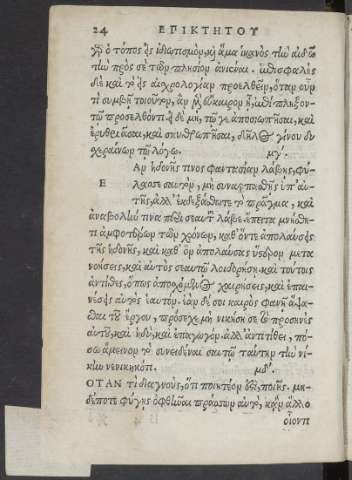 24 ΕΠΙΚΤΗΤΟΥ
ὁ τόπος εἰς ἰδιωτισμὸν, καὶ ἅμα ἱκανὸς τὴν αἰδῶ
τὴν πρός σε τῶν πλησίον ἀνιέναι. ἐπισφαλὲς
δὲ καὶ τὸ εἰς αἰσχρολογίαν προελθεῖν, ὅταν οὖν
τι συμβῇ τοιοῦτον, ἂν μὲν εὔκαιρον ᾖ, ἐπίπληξον
τῷ προσελθόντι, εἰ δὲ μὴ, τῷ γε ἀποσιωπῆσαι, καὶ
ἐρυθριᾶσαι, καὶ σκυθρωπῆσαι, δῆλος γίνου δυ
χεραίνων τῷ λόγῳ. μγʹ.
Ἂν ἡδονῆς τινος φαντασίαν λάβῃς, φύ-
Ε λασσε σαυτὸν, μὴ συναρπασθῇς ὑπ' αὐ-
τῆς, ἀλλ' ἐκδεξάσθω σε τὸ πρᾶγμα, καὶ
ἀναβολήν τινα παρὰ σεαυτοῦ λάβε. ἔπειτα μνήσθη-
τι ἀμφοτέρων τῶν χρόνων, καθ' ὅν τε ἀπολαύσεις
τῆς ἡδονῆς, καὶ καθ' ὃν ἀπολαύσας ὕστερον μετα
νοήσεις, καὶ αὐτὸς σεαυτῷ λοιδορήσῃ. καὶ τούτοις
ἀντίθες, ὅπως ἀποσχόμενος χαιρήσεις, καὶ ἐπαι-
νέσεις αὐτὸς ἑαυτόν. ἐὰν δέ σοι καιρὸς φανῇ ἅψα-
σθαι τοῦ ἔργου, πρόσεχε μὴ νικήσῃ σε τὸ προσηνὲς
αὐτοῦ, καὶ ἡδὺ, καὶ ἐπαγωγόν. ἀλλ' ἀντιτίθει, πό-
σῳ ἄμεινον τὸ συνειδέναι σαυτῷ ταύτην τὴν νί-
κην νενικηκότι. μδʹ.
ΟΤΑΝ τι διαγνοὺς, ὅτι ποιητέον ἐστὶ, ποιῇς. μη-
δέποτε φύγῃς ὀφθῆναι πράσσων αὐτὸ, κἂν ἄλλο
οῖόντι